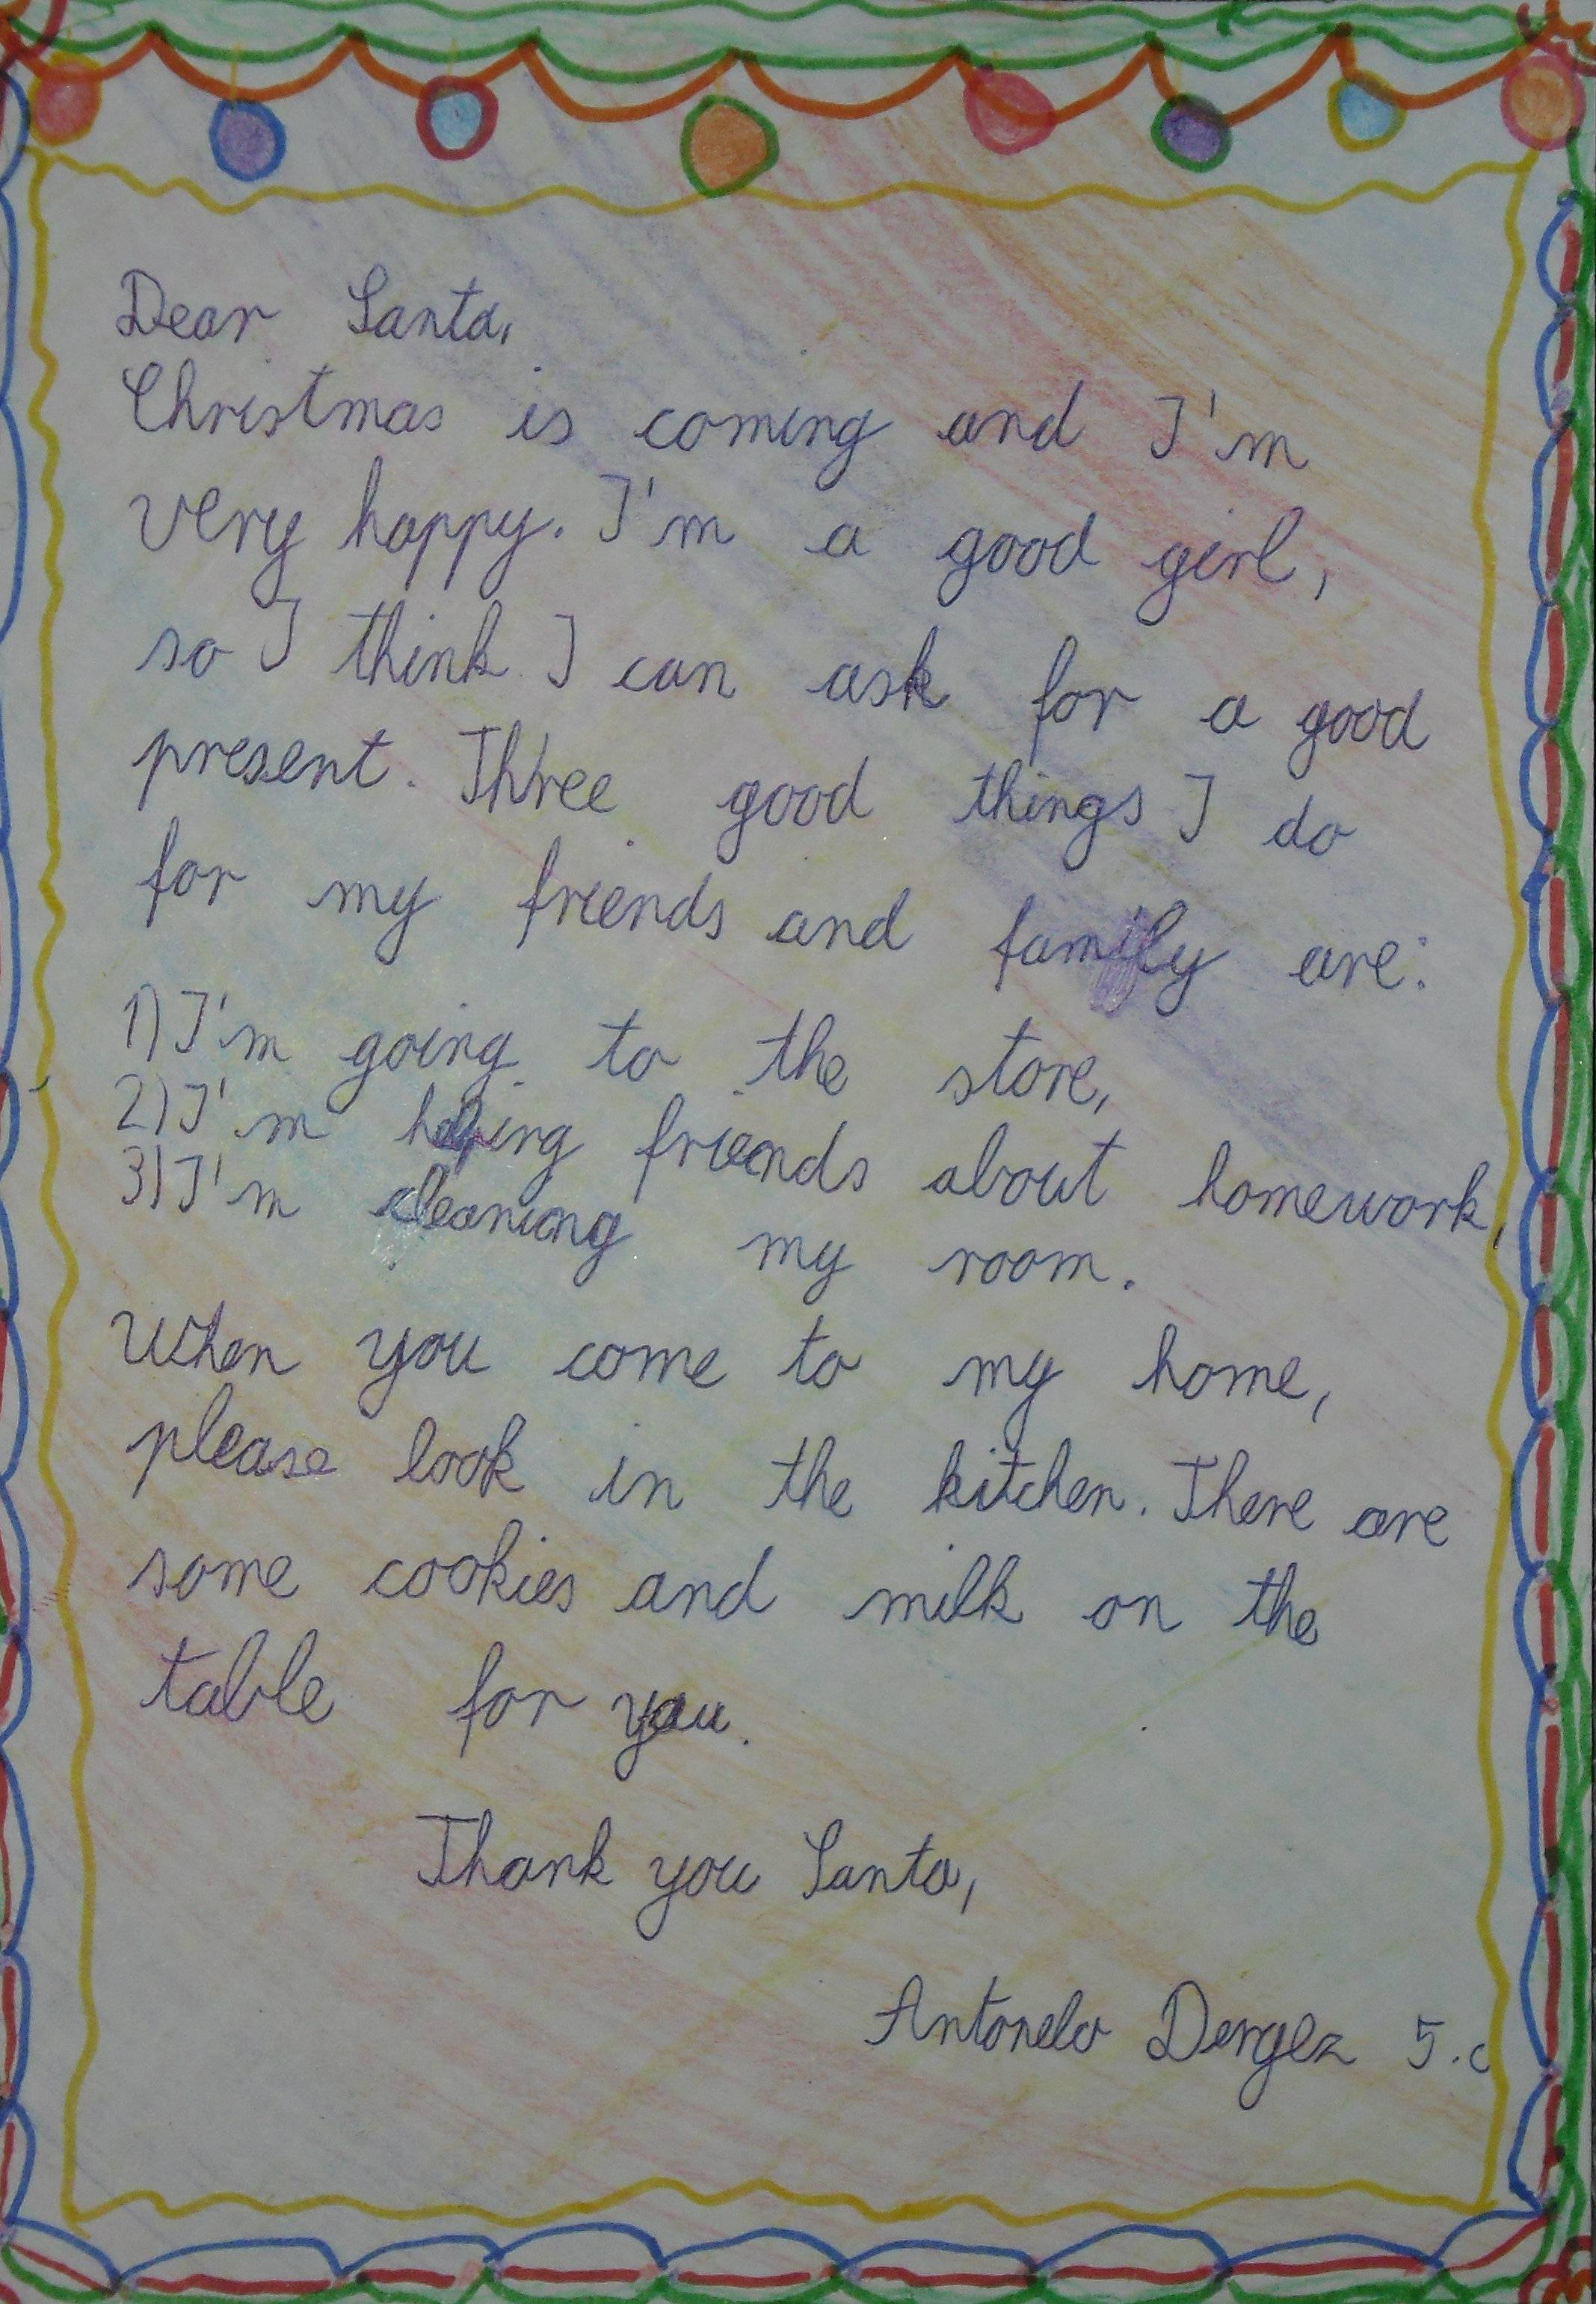 Dear Santa,
Christmas is coming and I'm
very happy. I'm a good girl,
so I think I can ask for a good
present. Three good things I do
for my friends and family are:
1) I'm going to the store,
2) I'm helping friends about homework,
3) I'm cleaning my room.
When you come to my home,
please look in the kitchen. There are
some cookies and milk on the
table for you.
Thank you Santa,
Antonela Dergez 5.c